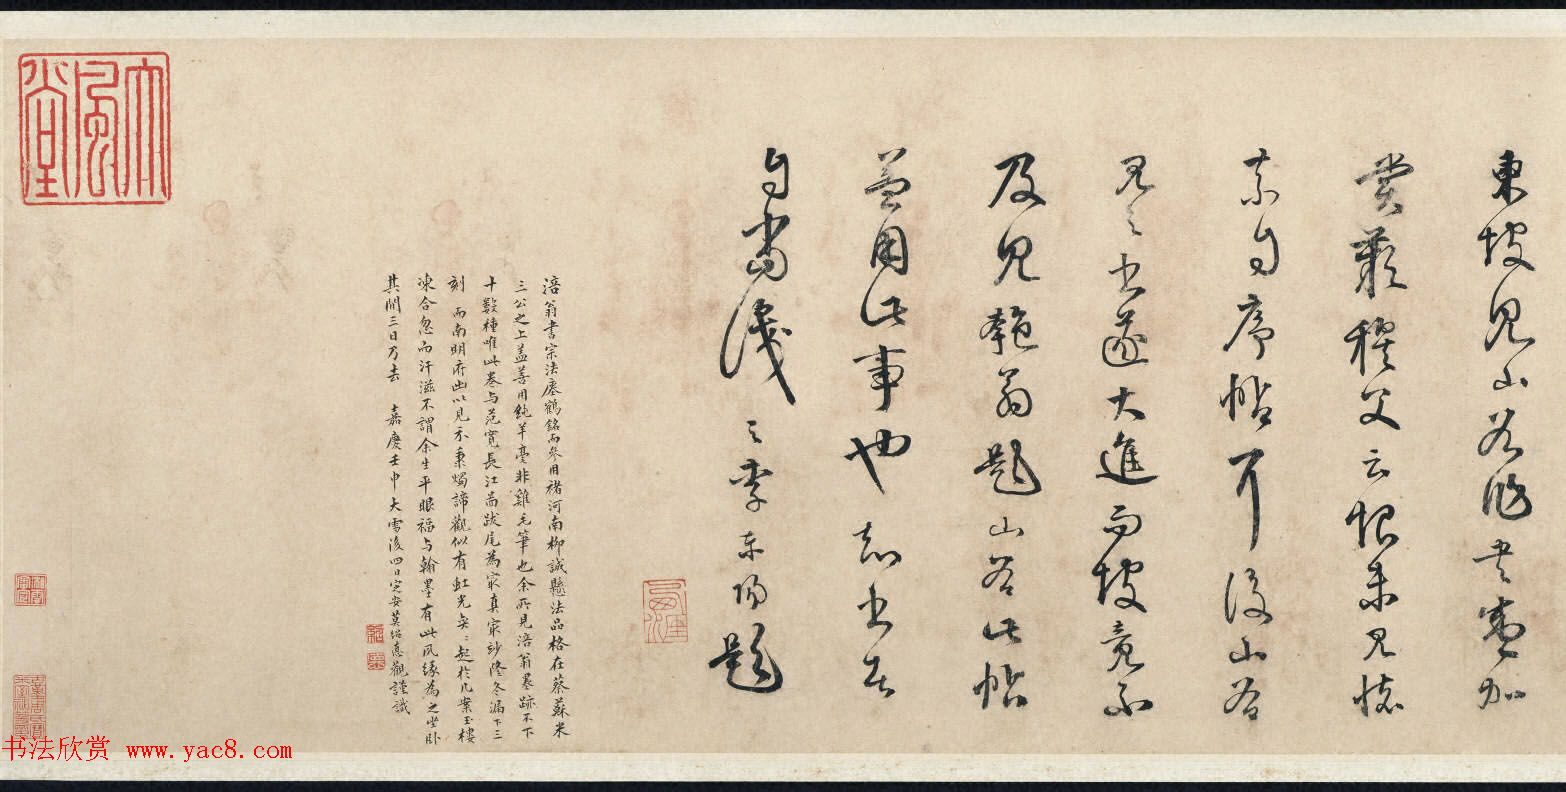 東坡見山谷作書專加
賞歎穆父云恨未見懷
素自序帖耳後山谷
見之書遂大進而坡竟不
及見匏翁題山谷此帖
蓋用此事也知書者
自當識之 李東陽題
涪翁書宗法瘞鶴銘而參用褚河南柳誠懸法品格在蔡蘇米
三公之上蓋善用純羊毫非雞毛筆也余所見涪翁墨跡不下
十數種唯此卷与范寬長江啚跋尾為寂真寂妙隆冬漏下三
刻 而南明府出以見示秉燭諦觀似有虹光矣矣起於几案玉樓
凍合忽而汗滋不謂余生平眼福与翰墨有此夙緣為之坐卧
其間三日乃去 嘉慶壬申大雪後四日定安莫紹惪觀謹識
大風堂
书法欣赏 www.yac8.com